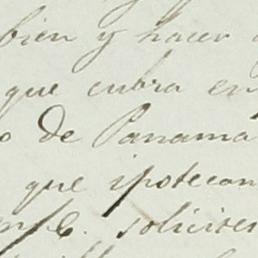 bien y hacer
que cubra en
o de Panamá
que ipotecan
solicite